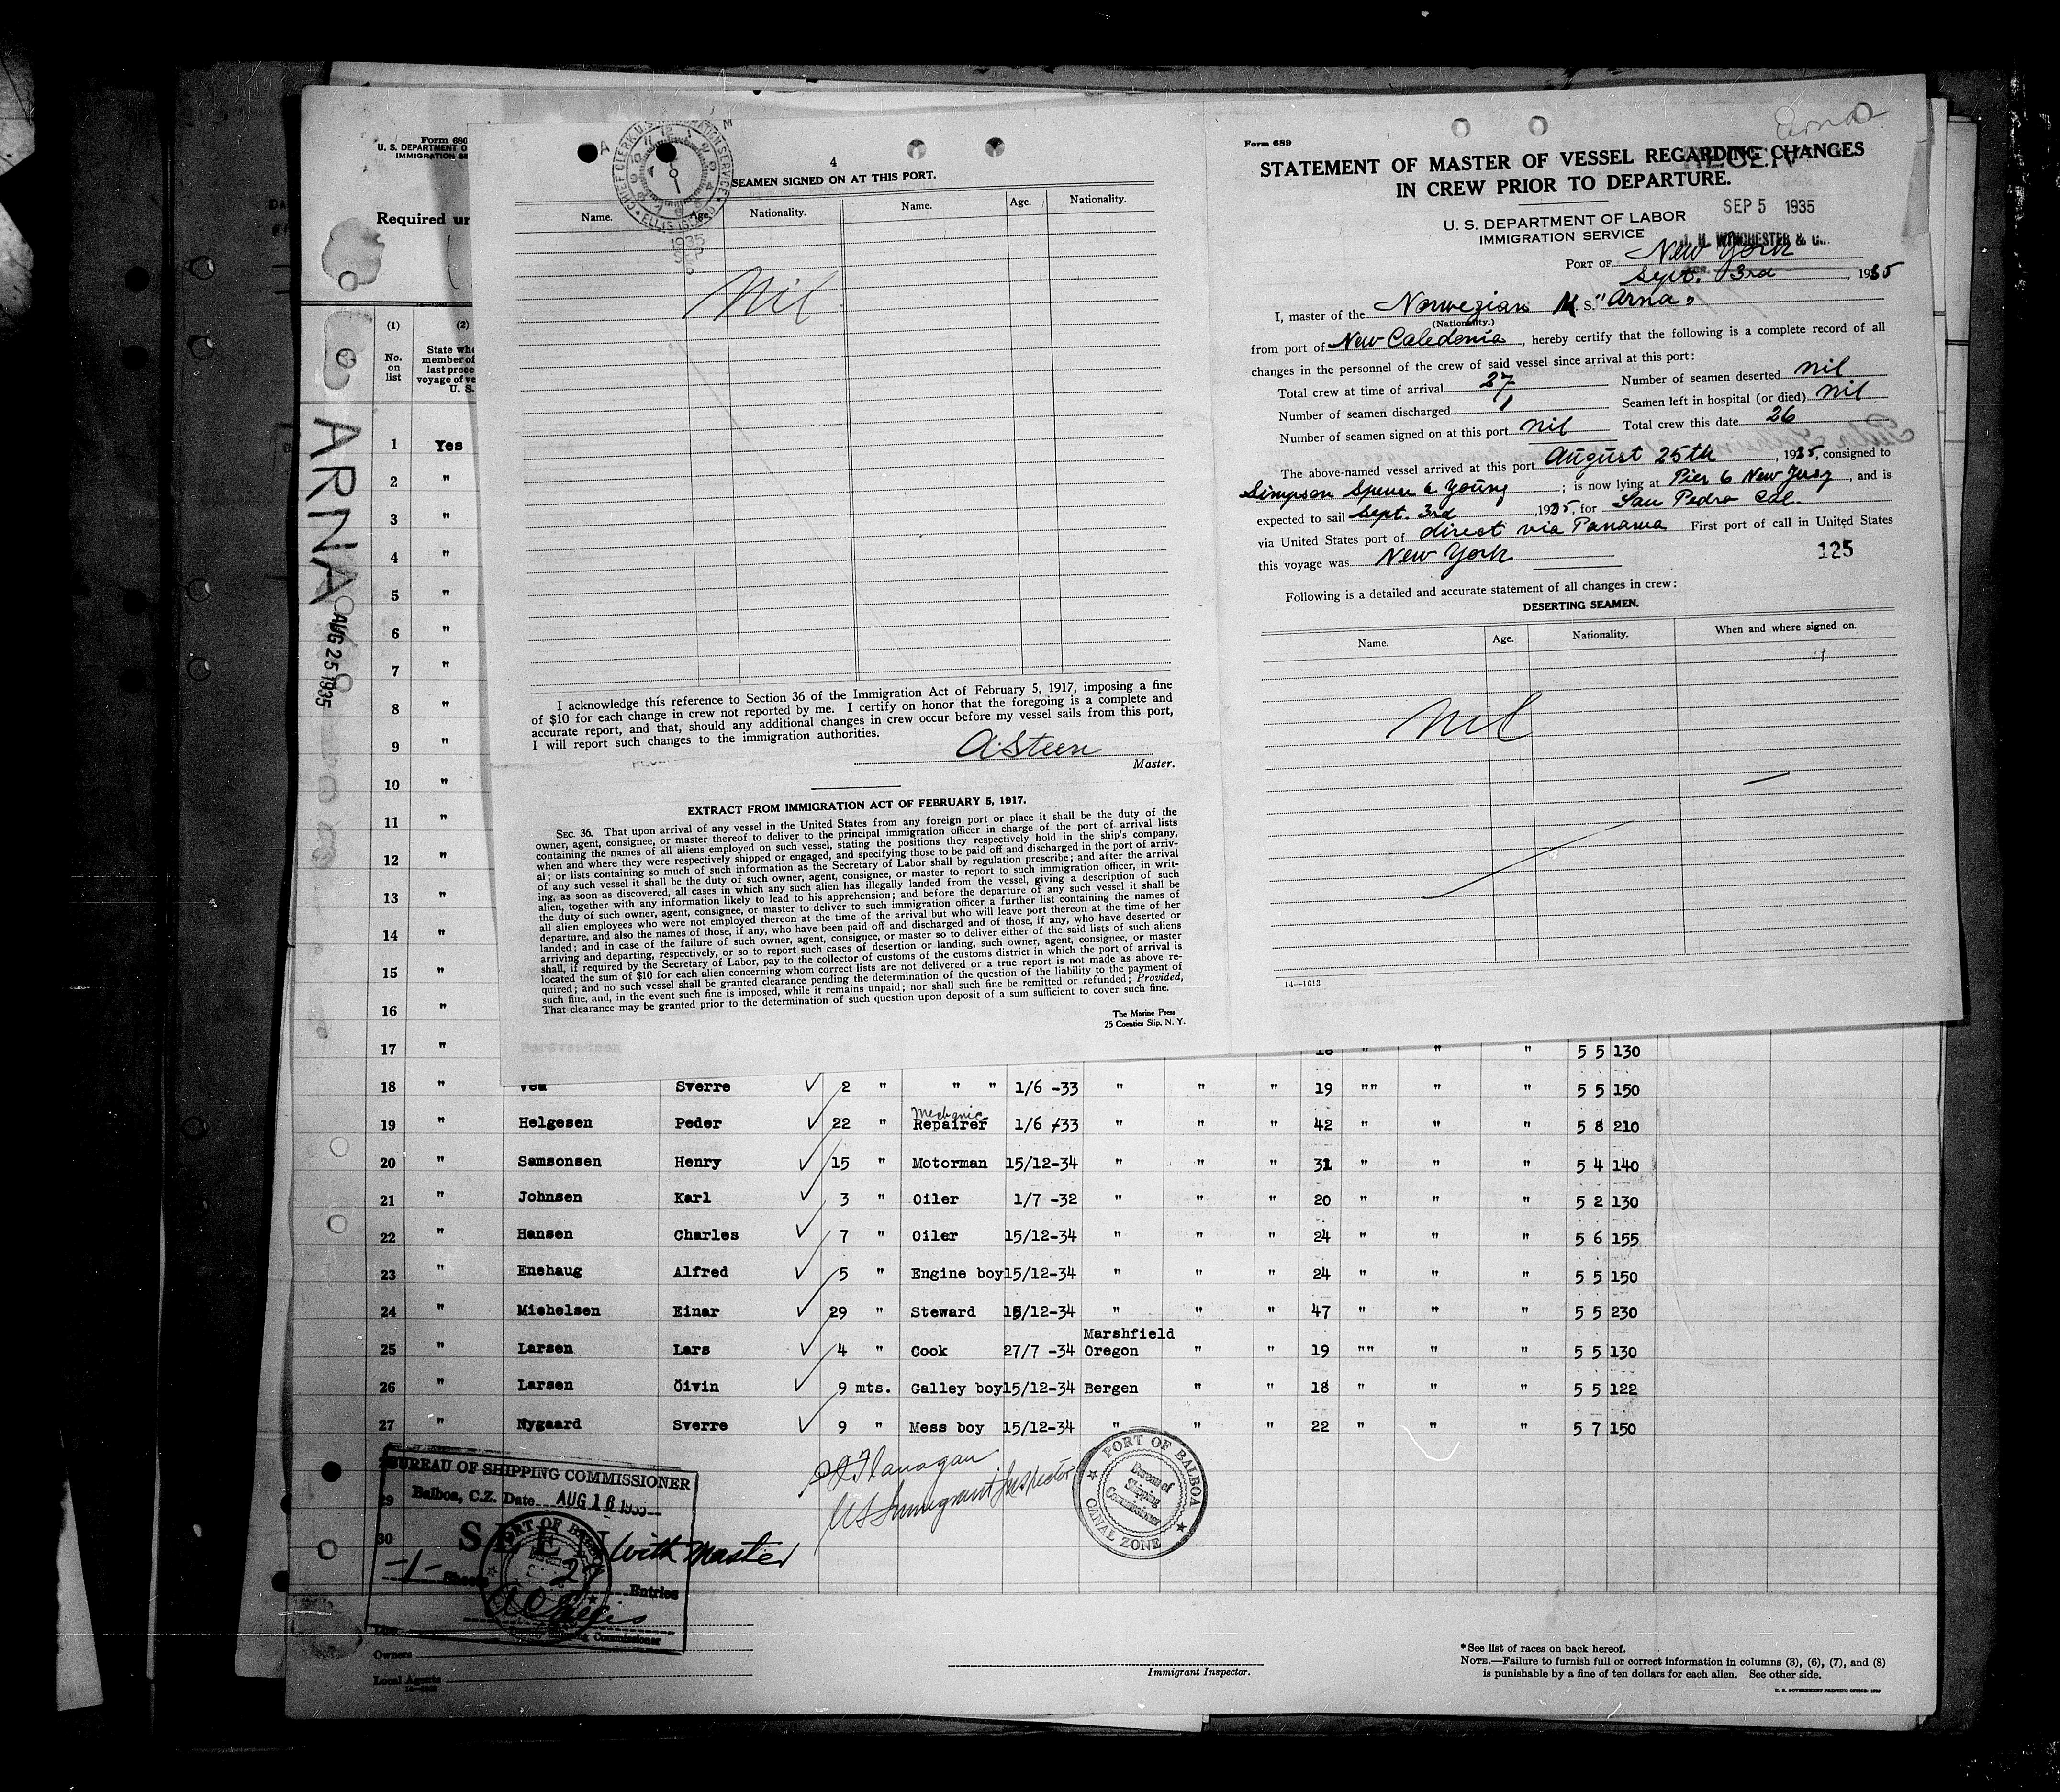 Form 680
U. S. DEPARTMENT O
IMMIGRATION SE
Required un
(1)
No.
on
list
(2)
State whe
member of
last prece
voyage of ve
U. S.
ARNA
AUG 25 1935
1 Yes
2 "
3 "
4 "
5 "
6 "
7 "
8 "
9 "
10 "
11 "
12 "
13 "
14 "
15 "
16 "
CHIEF CLERK U.S. IMMIGRATION SERVICE
ELLIS ISLAND
1935
SEP
4
SEAMEN SIGNED ON AT THIS PORT.
Name. Age. Nationality. Name. Age. Nationality.
Nil
I acknowledge this reference to Section 36 of the Immigration Act of February 5, 1917, imposing a fine
of $10 for each change in crew not reported by me. I certify on honor that the foregoing is a complete and
accurate report, and that, should any additional changes in crew occur before my vessel sails from this port,
I will report such changes to the immigration authorities.
A Steen
Master.
EXTRACT FROM IMMIGRATION ACT OF FEBRUARY 5, 1917.
SEC. 36. That upon arrival of any vessel in the United States from any foreign port or place it shall be the duty of the
owner, agent, consignee, or master thereof to deliver to the principal immigration officer in charge of the port of arrival lists
containing the names of all aliens employed on such vessel, stating the positions they respectively hold in the ship's company,
when and where they were respectively shipped or engaged, and specifying those to be paid off and discharged in the port of arriv-
al; or lists containing so much of such information as the Secretary of Labor shall by regulation prescribe; and after the arrival
of any such vessel it shall be the duty of such owner, agent, consignee, or master to report to such immigration officer, in writ-
ing, as soon as discovered, all cases in which any such alien has illegally landed from the vessel, giving a description of such
alien, together with any information likely to lead to his apprehension; and before the departure of any such vessel it shall be
the duty of such owner, agent, consignee, or master to deliver to such immigration officer a further list containing the names of
all alien employees who were not employed thereon at the time of the arrival but who will leave port thereon at the time of her
departure, and also the names of those, if any, who have been paid off and discharged and of those, if any, who have deserted or
landed; and in case of the failure of such owner, agent, consignee, or master so to deliver either of the said lists of such aliens
arriving and departing, respectively, or so to report such cases of desertion or landing, such owner, agent, consignee, or master
shall, if required by the Secretary of Labor, pay to the collector of customs of the customs district in which the port of arrival is
located the sum of $10 for each alien concerning whom correct lists are not delivered or a true report is not made as above re-
quired; and no such vessel shall be granted clearance pending the determination of the question of the liability to the payment of
such fine, and, in the event such fine is imposed, while it remains unpaid; nor shall such fine be remitted or refunded; Provided,
That clearance may be granted prior to the determination of such question upon deposit of a sum sufficient to cover such fine.
The Marine Press
25 Coenties Slip, N. Y.
Arna
Form 689
STATEMENT OF MASTER OF VESSEL REGARDING CHANGES
IN CREW PRIOR TO DEPARTURE.
U. S. DEPARTMENT OF LABOR
IMMIGRATION SERVICE
SEP 5 1935
J. H. WINCHESTER & C
PORT OF New York
Sept. 3rd, 1935
I, master of the Norwegian M. S. "Arna"
(Nationality.)
from port of New Caledonia, hereby certify that the following is a complete record of all
changes in the personnel of the crew of said vessel since arrival at this port:
Total crew at time of arrival 27 Number of seamen deserted nil
Number of seamen discharged 1 Seamen left in hospital (or died) nil
Number of seamen signed on at this port nil Total crew this date 26
The above-named vessel arrived at this port August 25th, 1935, consigned to
Simpson Spence & Young; is now lying at Pier 6 New Jersy, and is
expected to sail Sept. 3rd, 1935, for San Pedro Cal.
via United States port of direct via Panama First port of call in United States
this voyage was New York
125
Following is a detailed and accurate statement of all changes in crew:
DESERTING SEAMEN.
Name. Age. Nationality. When and where signed on.
Nil
14—1613
17 " 18 " " " 5 5 130
18 " Vea Sverre 2 " " " 1/6 -33 " " " 19 "" " " 5 5 150
Mechanic
19 " Helgesen Peder 22 " Repairer 1/6 -33 " " " 42 " " " 5 8 210
20 " Samsonsen Henry 15 " Motorman 15/12-34 " " " 31 " " " 5 4 140
21 " Johnsen Karl 3 " Oiler 1/7 -32 " " " 20 " " " 5 2 130
22 " Hansen Charles 7 " Oiler 15/12-34 " " " 24 " " " 5 6 155
23 " Enehaug Alfred 5 " Engine boy 15/12-34 " " " 24 " " " 5 5 150
24 " Michelsen Einar 29 " Steward 15/12-34 " " " 47 " " " 5 5 230
Marshfield
25 " Larsen Lars 4 " Cook 27/7 -34 Oregon " " 19 "" " " 5 5 130
26 " Larsen Öivin 9 mts. Galley boy 15/12-34 Bergen " " 18 " " " 5 5 122
27 " Nygaard Sverre 9 " Mess boy 15/12-34 " " " 22 " " " 5 7 150
29
30
BUREAU OF SHIPPING COMMISSIONER
Balboa, C.Z. Date AUG 16 1935
SEEN
With Master
-1- Sheets 27 Entries
Shipping Commissioner
PORT OF BALBOA
Flanagan
US Immigrant Inspector
PORT OF BALBOA
Bureau of
Shipping
Commissioner
CANAL ZONE
Line
Owners
Local Agents
Immigrant Inspector.
*See list of races on back hereof.
NOTE.—Failure to furnish full or correct information in columns (3), (6), (7), and (8)
is punishable by a fine of ten dollars for each alien. See other side.
U. S. GOVERNMENT PRINTING OFFICE